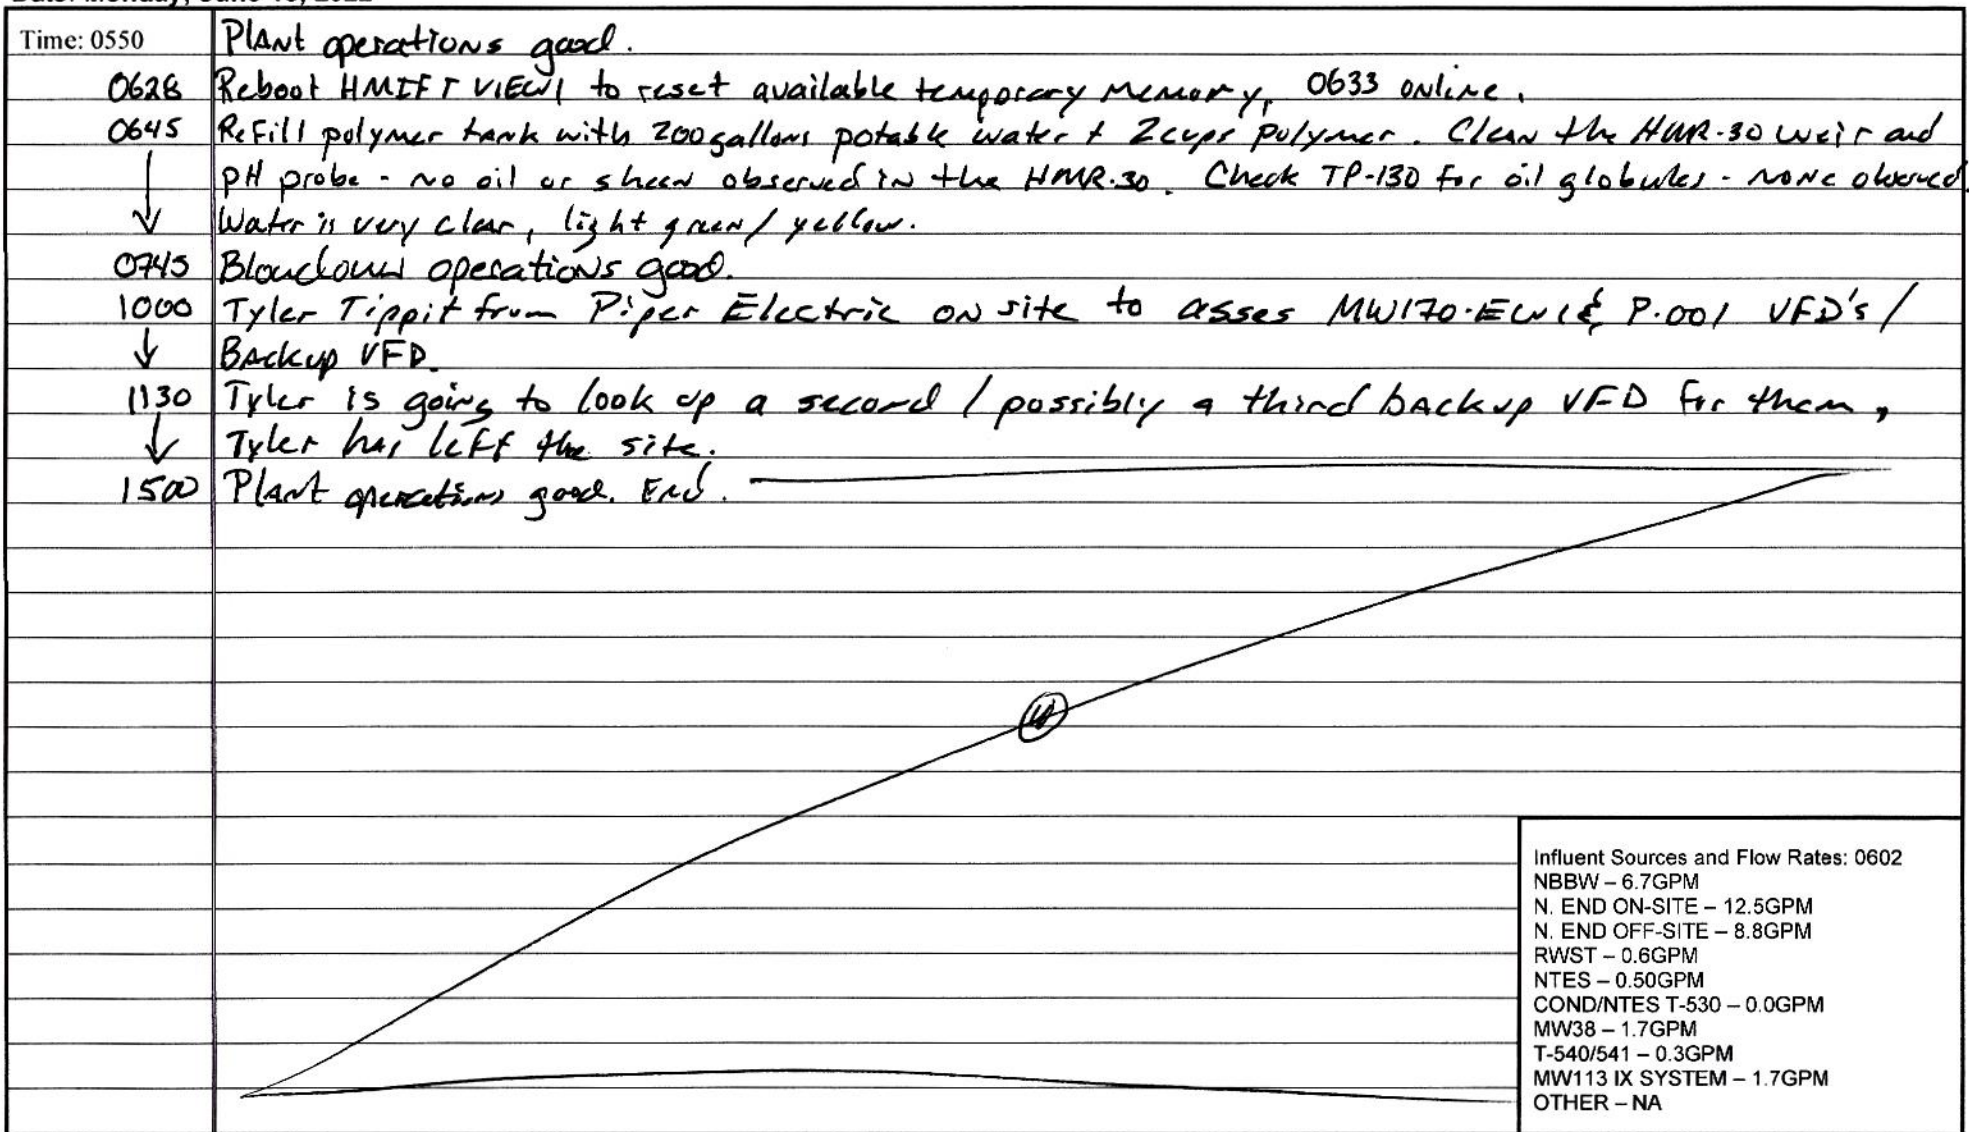 Time: 0550 Plant operations good.
0628 Reboot HMIFT VIEW1 to reset available temporary memory, 0633 online.
0645 Refill polymer tank with 200 gallons potable water + 2 cups polymer. Clean the HMR-30 weir and
pH probe - no oil or sheen observed in the HMR-30. Check TP-130 for oil globules - none observed.
Water is very clear, light green / yellow.
0745 Blowdown operations good.
1000 Tyler Tippit from Piper Electric on site to asses MW170-EW1 & P-001 VFD's /
Backup VFD.
1130 Tyler is going to look up a second / possibly a third backup VFD for them,
Tyler has left the site.
1500 Plant operations good. End.
Influent Sources and Flow Rates: 0602
NBBW – 6.7GPM
N. END ON-SITE – 12.5GPM
N. END OFF-SITE – 8.8GPM
RWST – 0.6GPM
NTES – 0.50GPM
COND/NTES T-530 – 0.0GPM
MW38 – 1.7GPM
T-540/541 – 0.3GPM
MW113 IX SYSTEM – 1.7GPM
OTHER – NA